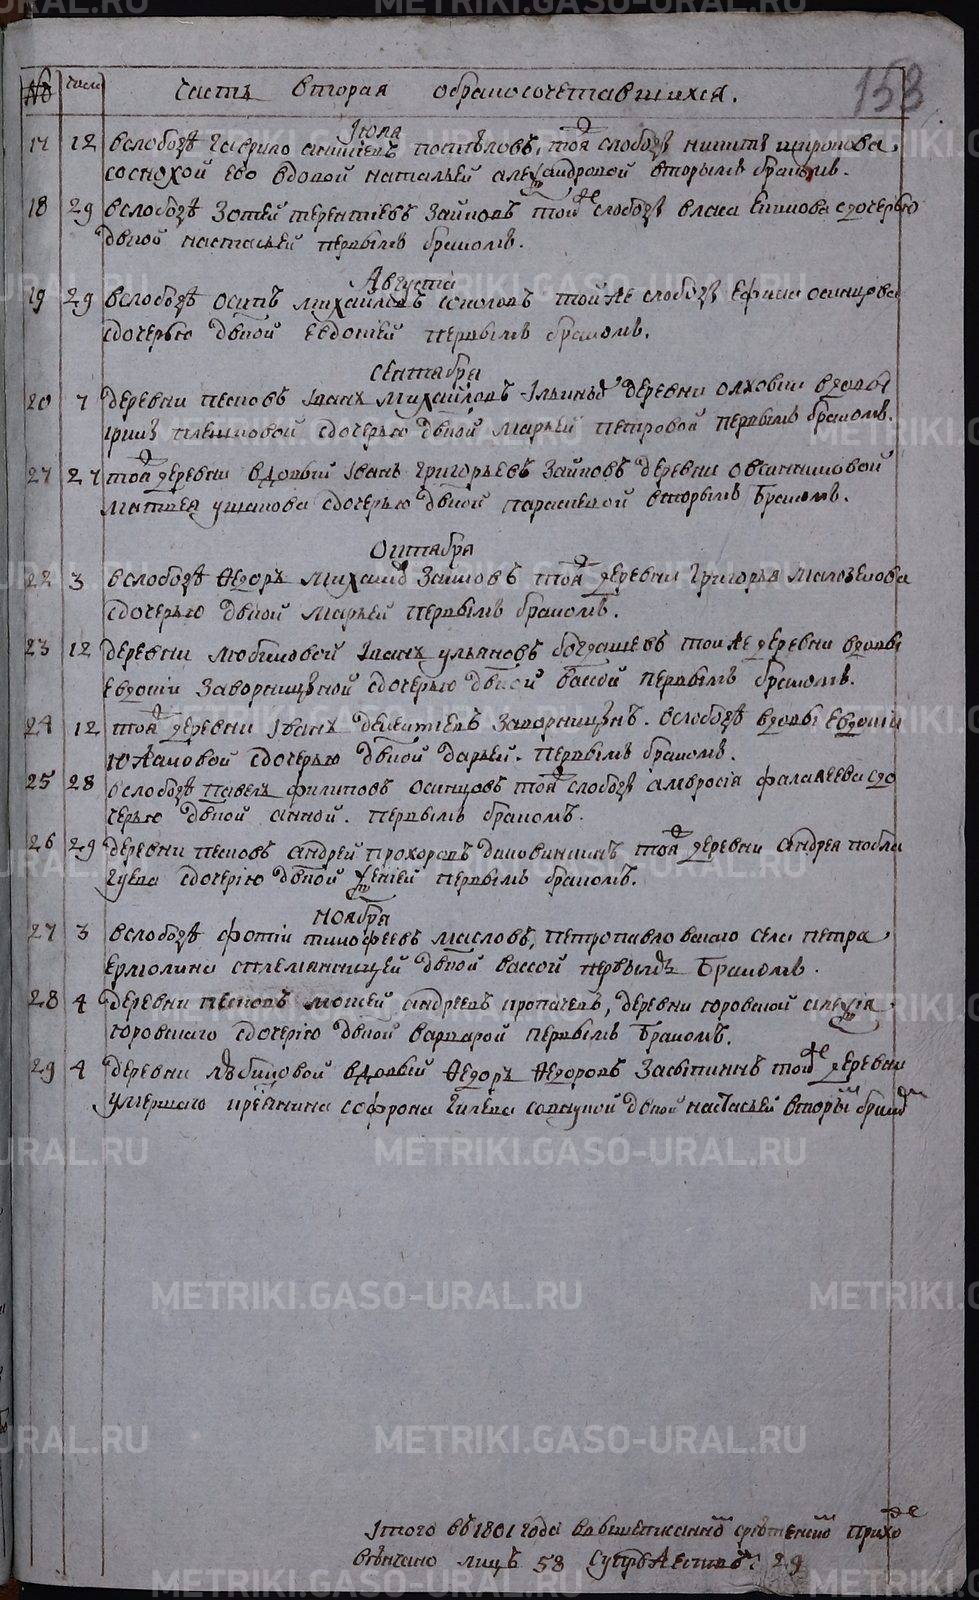 158
№ число Часть вторая обракосочетавшихся.
Июля
17 12 вслободѣ Гаврило поспѣловъ, тоя слободы никиты широкова
соснохой ево вдовой натальей александровой вторымъ бракомъ.
18 29 вслободѣ Зотей терентьевъ Зайковъ той же слободы власа Екимова здочерью
двкой настасьей первымъ бракомъ.
Августа
19 29 вслободѣ осипъ михайловъ соколовъ той же слободы Ефима осинцова
сдочерью двкой Евдокией первымъ бракомъ.
Сентября
20 7 деревни песковъ Iванъ михайловъ Ильиныхъ деревни олховки вдовы
Ирины плешковой сдочерью двкой марьей петровой первымъ бракомъ.
21 27 той деревни вдовый Iванъ григорьевъ Зайковъ деревни овчинниковой
матвея ушакова сдочерью двкой параскевой вторымъ бракомъ.
Октября
22 3 вслободѣ Ѳедоръ михайлов Зайковъ тоя деревни григорья малоземова
сдочерью двкой марьей первымъ бракомъ.
23 12 деревни любимовой Iванъ ульяновъ богдашевъ той же деревни вдовы
евдокiи Заворницыной сдочерью двкой вассой первымъ бракомъ.
24 12 тоя деревни Iванъ Заворницынъ. вслободѣ вдовы Евдокiи
южаковой сдочерью двкой дарьей. первымъ бракомъ.
25 28 вслободѣ павелъ филиповъ осинцовъ тоя слободы амвросiя фалалеева сдо
черью двкой анной. первымъ бракомъ.
26 29 деревни песковъ андрей прохоровъ тоя деревни андрея побла
гуева сдочерiю двкой первымъ бракомъ.
Ноября
27 3 вслободѣ фотiи тимофеевъ масловъ, петропавловскаго села петра
Ермолина сплемянницей двкой вассой первымъ Бракомъ.
28 4 деревни песковъ мокей андреевъ пропачевъ, деревни боровской алексiя
боровскаго сдочерiю двкой варварой первымъ Бракомъ.
29 4 деревни любимовой вдовый Ѳедоръ Ѳедоровъ той же деревни
умершаго софрона Гилева двкой настасьей вторый брако
Iтого въ 1801 года
вѣнчано лицъ 58 29
METRIKI.GASO-URAL.RU